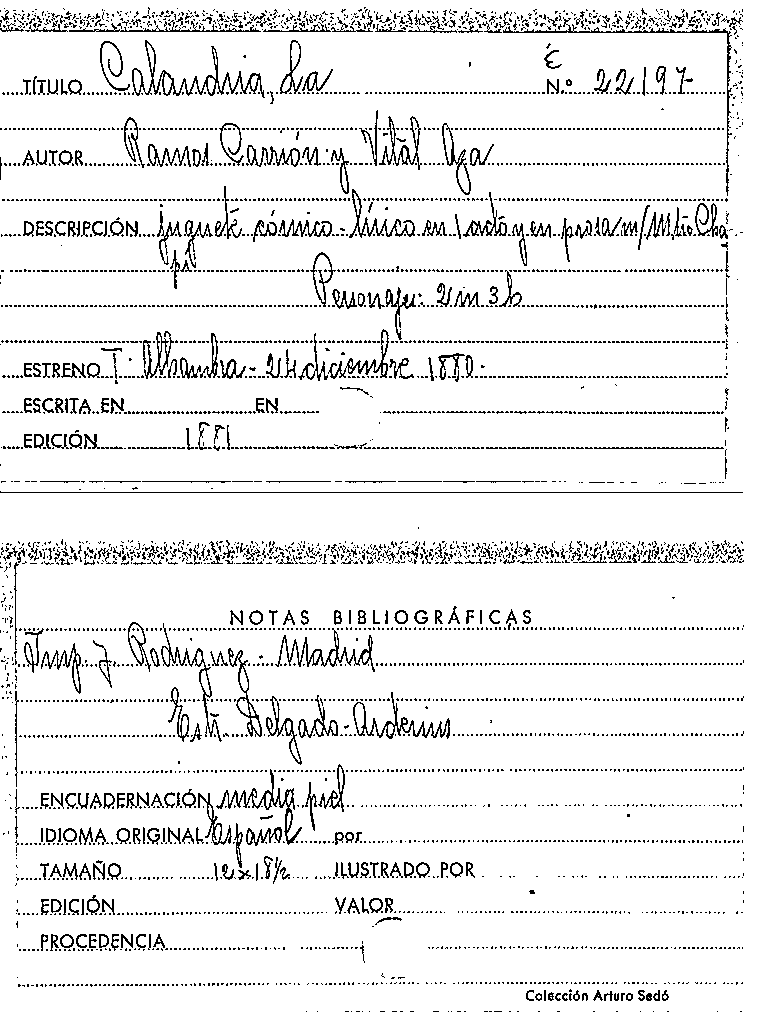 É
TÍTULO Calandria, La N.º 22197-
AUTOR Ramos Carrión y Vital Aza
DESCRIPCIÓN juguete cómico-lírico en 1 acto y en prosa m/ Mtro Cha
pí
Personajes: 2m 3h
ESTRENO T. Alhambra - 24 diciembre 1880.
ESCRITA EN EN
EDICIÓN 1881
NOTAS BIBLIOGRÁFICAS
Imp. J. Rodriguez - Madrid
Estr. Delgado-Arderius
ENCUADERNACIÓN media piel
IDIOMA ORIGINAL Español por
TAMAÑO 12x18½ ILUSTRADO POR
EDICIÓN VALOR
PROCEDENCIA
Colección Arturo Sedó